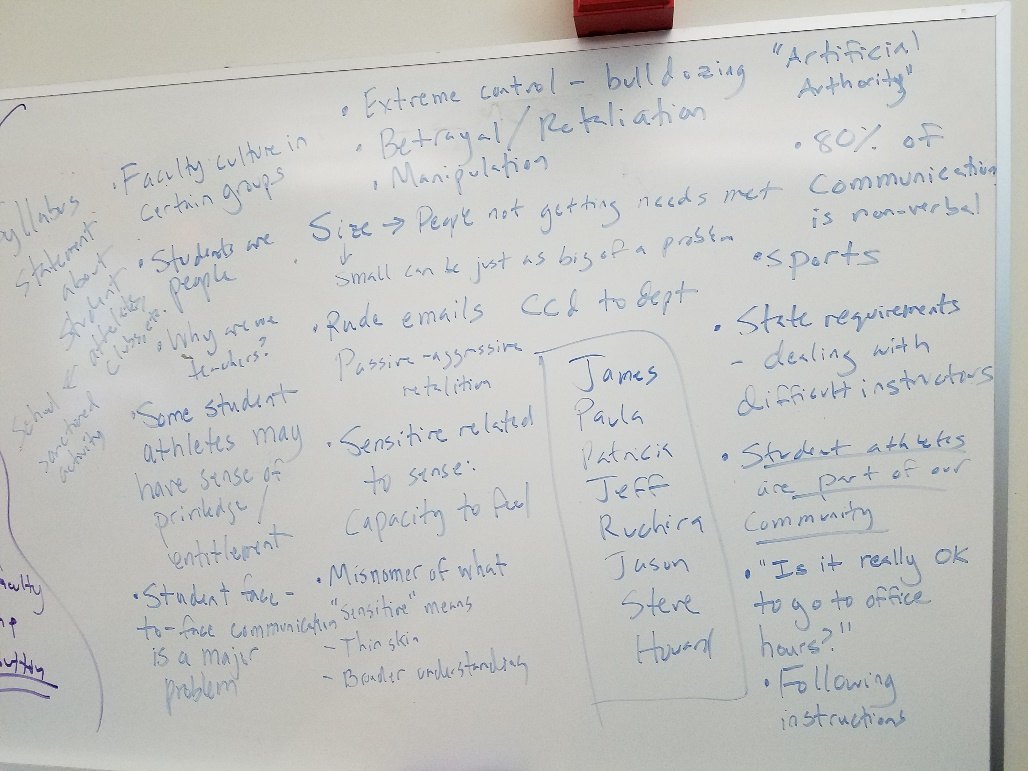 Syllabus
Statement
about
Student
athletes,
clubs etc.
School
sanctioned
activity
• Faculty culture in
certain groups
• Students are
people
• Why are we
teachers?
• Some student
athletes may
have sense of
priviledge /
entitlement
• Student face-
to-face communication
is a major
problem
• Extreme control - bulldozing
• Betrayal/Retaliation
• Manipulation
Size → People not getting needs met
↓
• Small can be just as big of a problem
• Rude emails CCd to dept
Passive-aggressive
retalition
• Sensitive related
to sense:
Capacity to feel
• Misnomer of what
"Sensitive" means
- Thin skin
- Broader understanding
James
Paula
Patricia
Jeff
Ruchira
Jason
Steve
Howard
"Artificial
Authority"
• 80% of
Communication
is non-verbal
• Sports
• State requirements
- dealing with
difficult instructors
• Student athletes
are part of our
Community
• "Is it really OK
to go to office
hours?"
• Following
instructions